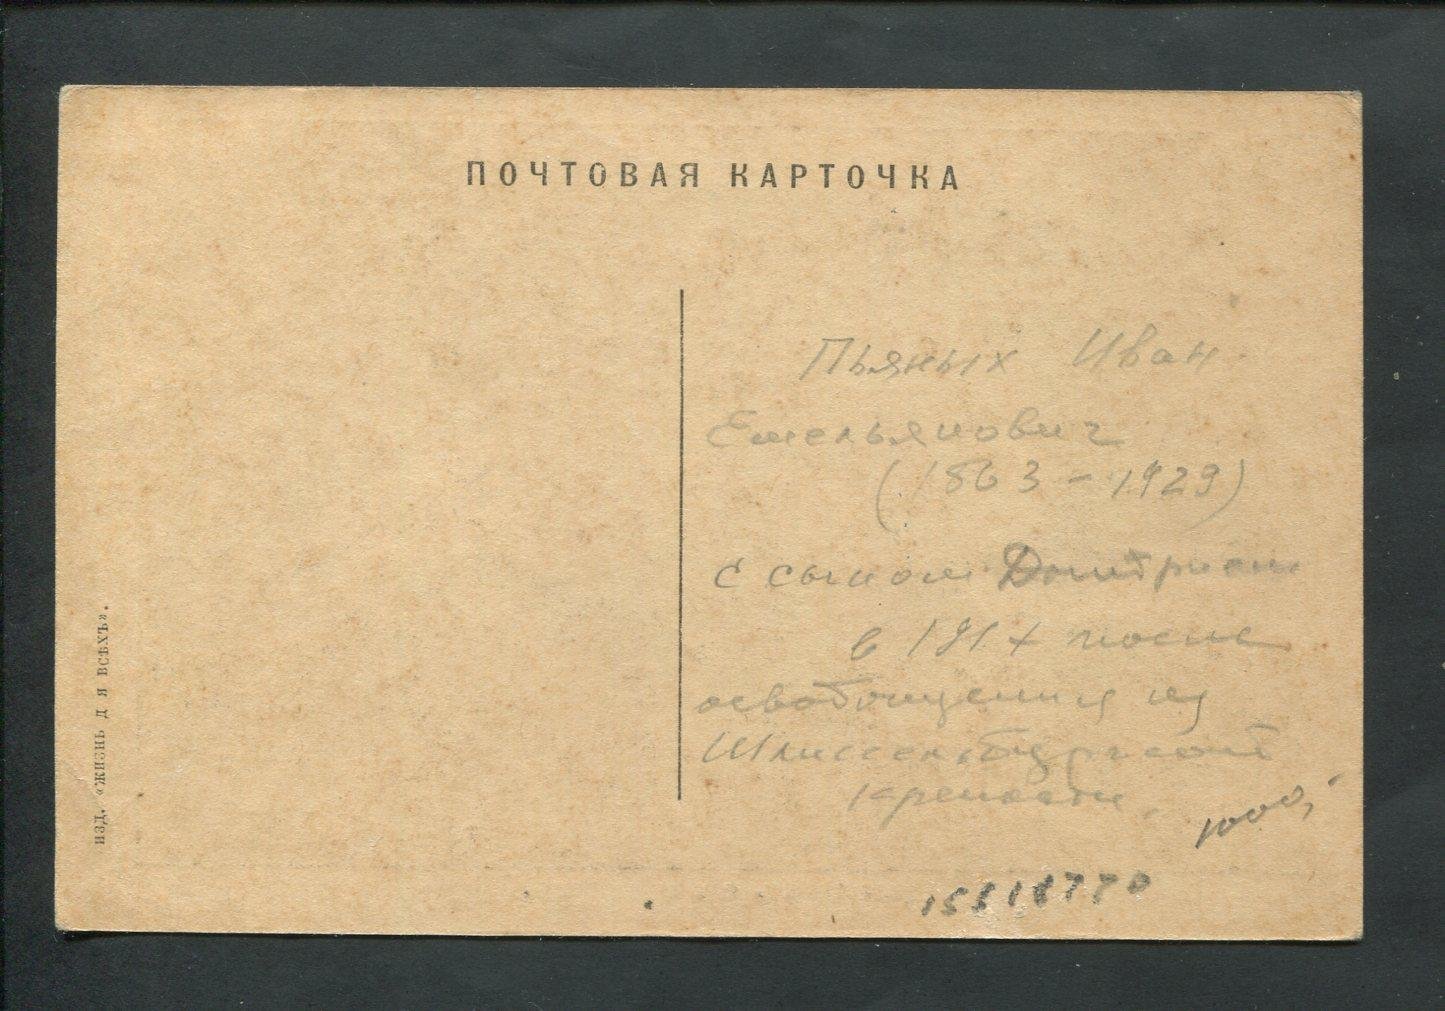 ПОЧТОВАЯ КАРТОЧКА
Пьяных Иван
Емельянович
(1863-1929)
с сыном Дмитрием
в 191+ после
освобождения из
Шлиссельбургской
крепости.
1000,-
изд. «ЖИЗНЬ Д Я ВСѢХЪ».